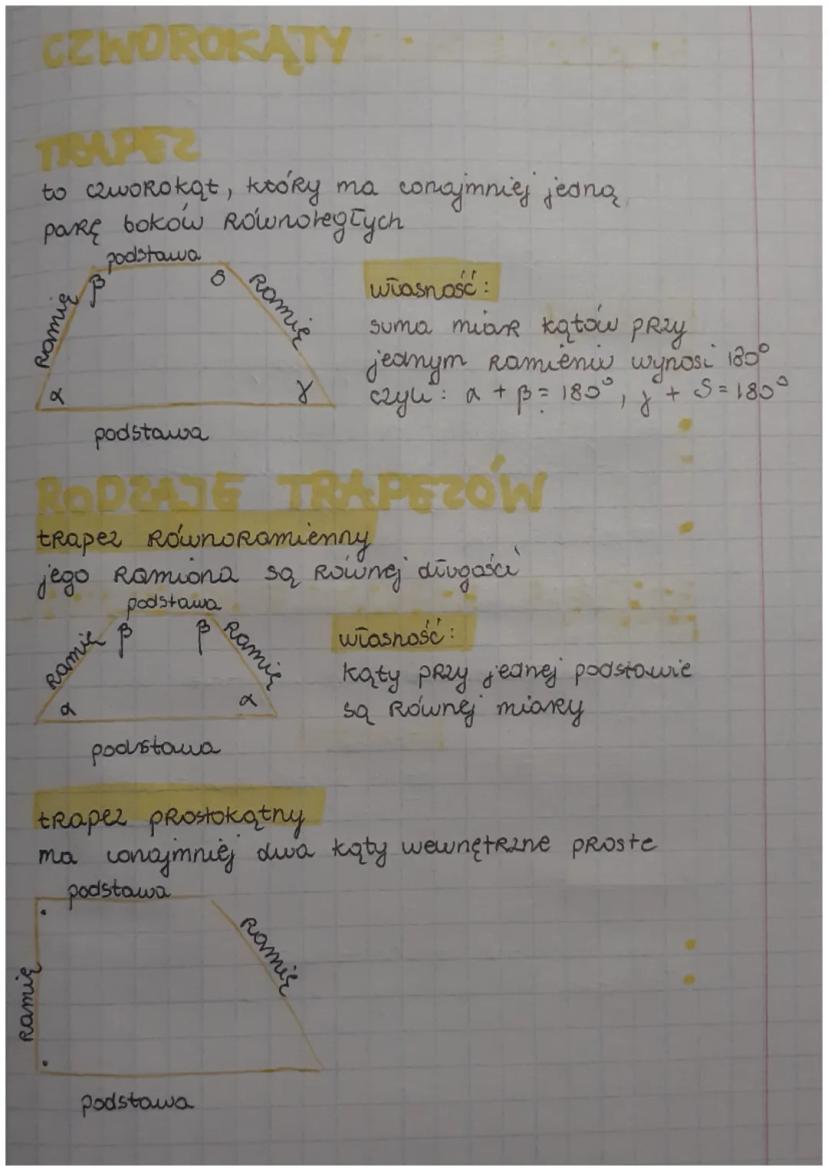 CZWOROKĄTY
TRAPEZ
to czworokąt, który ma conajmniej jedną
parę boków równoległych
podstawa
ramię
β
δ
ramię
α
γ
podstawa
własność:
suma miar kątów przy
jednym ramieniu wynosi 180°
czyli: α + β = 180°, γ + δ = 180°
RODZAJE TRAPEZÓW
trapez równoramienny
jego ramiona są równej długości
podstawa
ramię
β
β
ramię
α
α
podstawa
własność:
kąty przy jednej podstawie
są równej miary
trapez prostokątny
ma conajmniej dwa kąty wewnętrzne proste
podstawa
ramię
ramię
podstawa